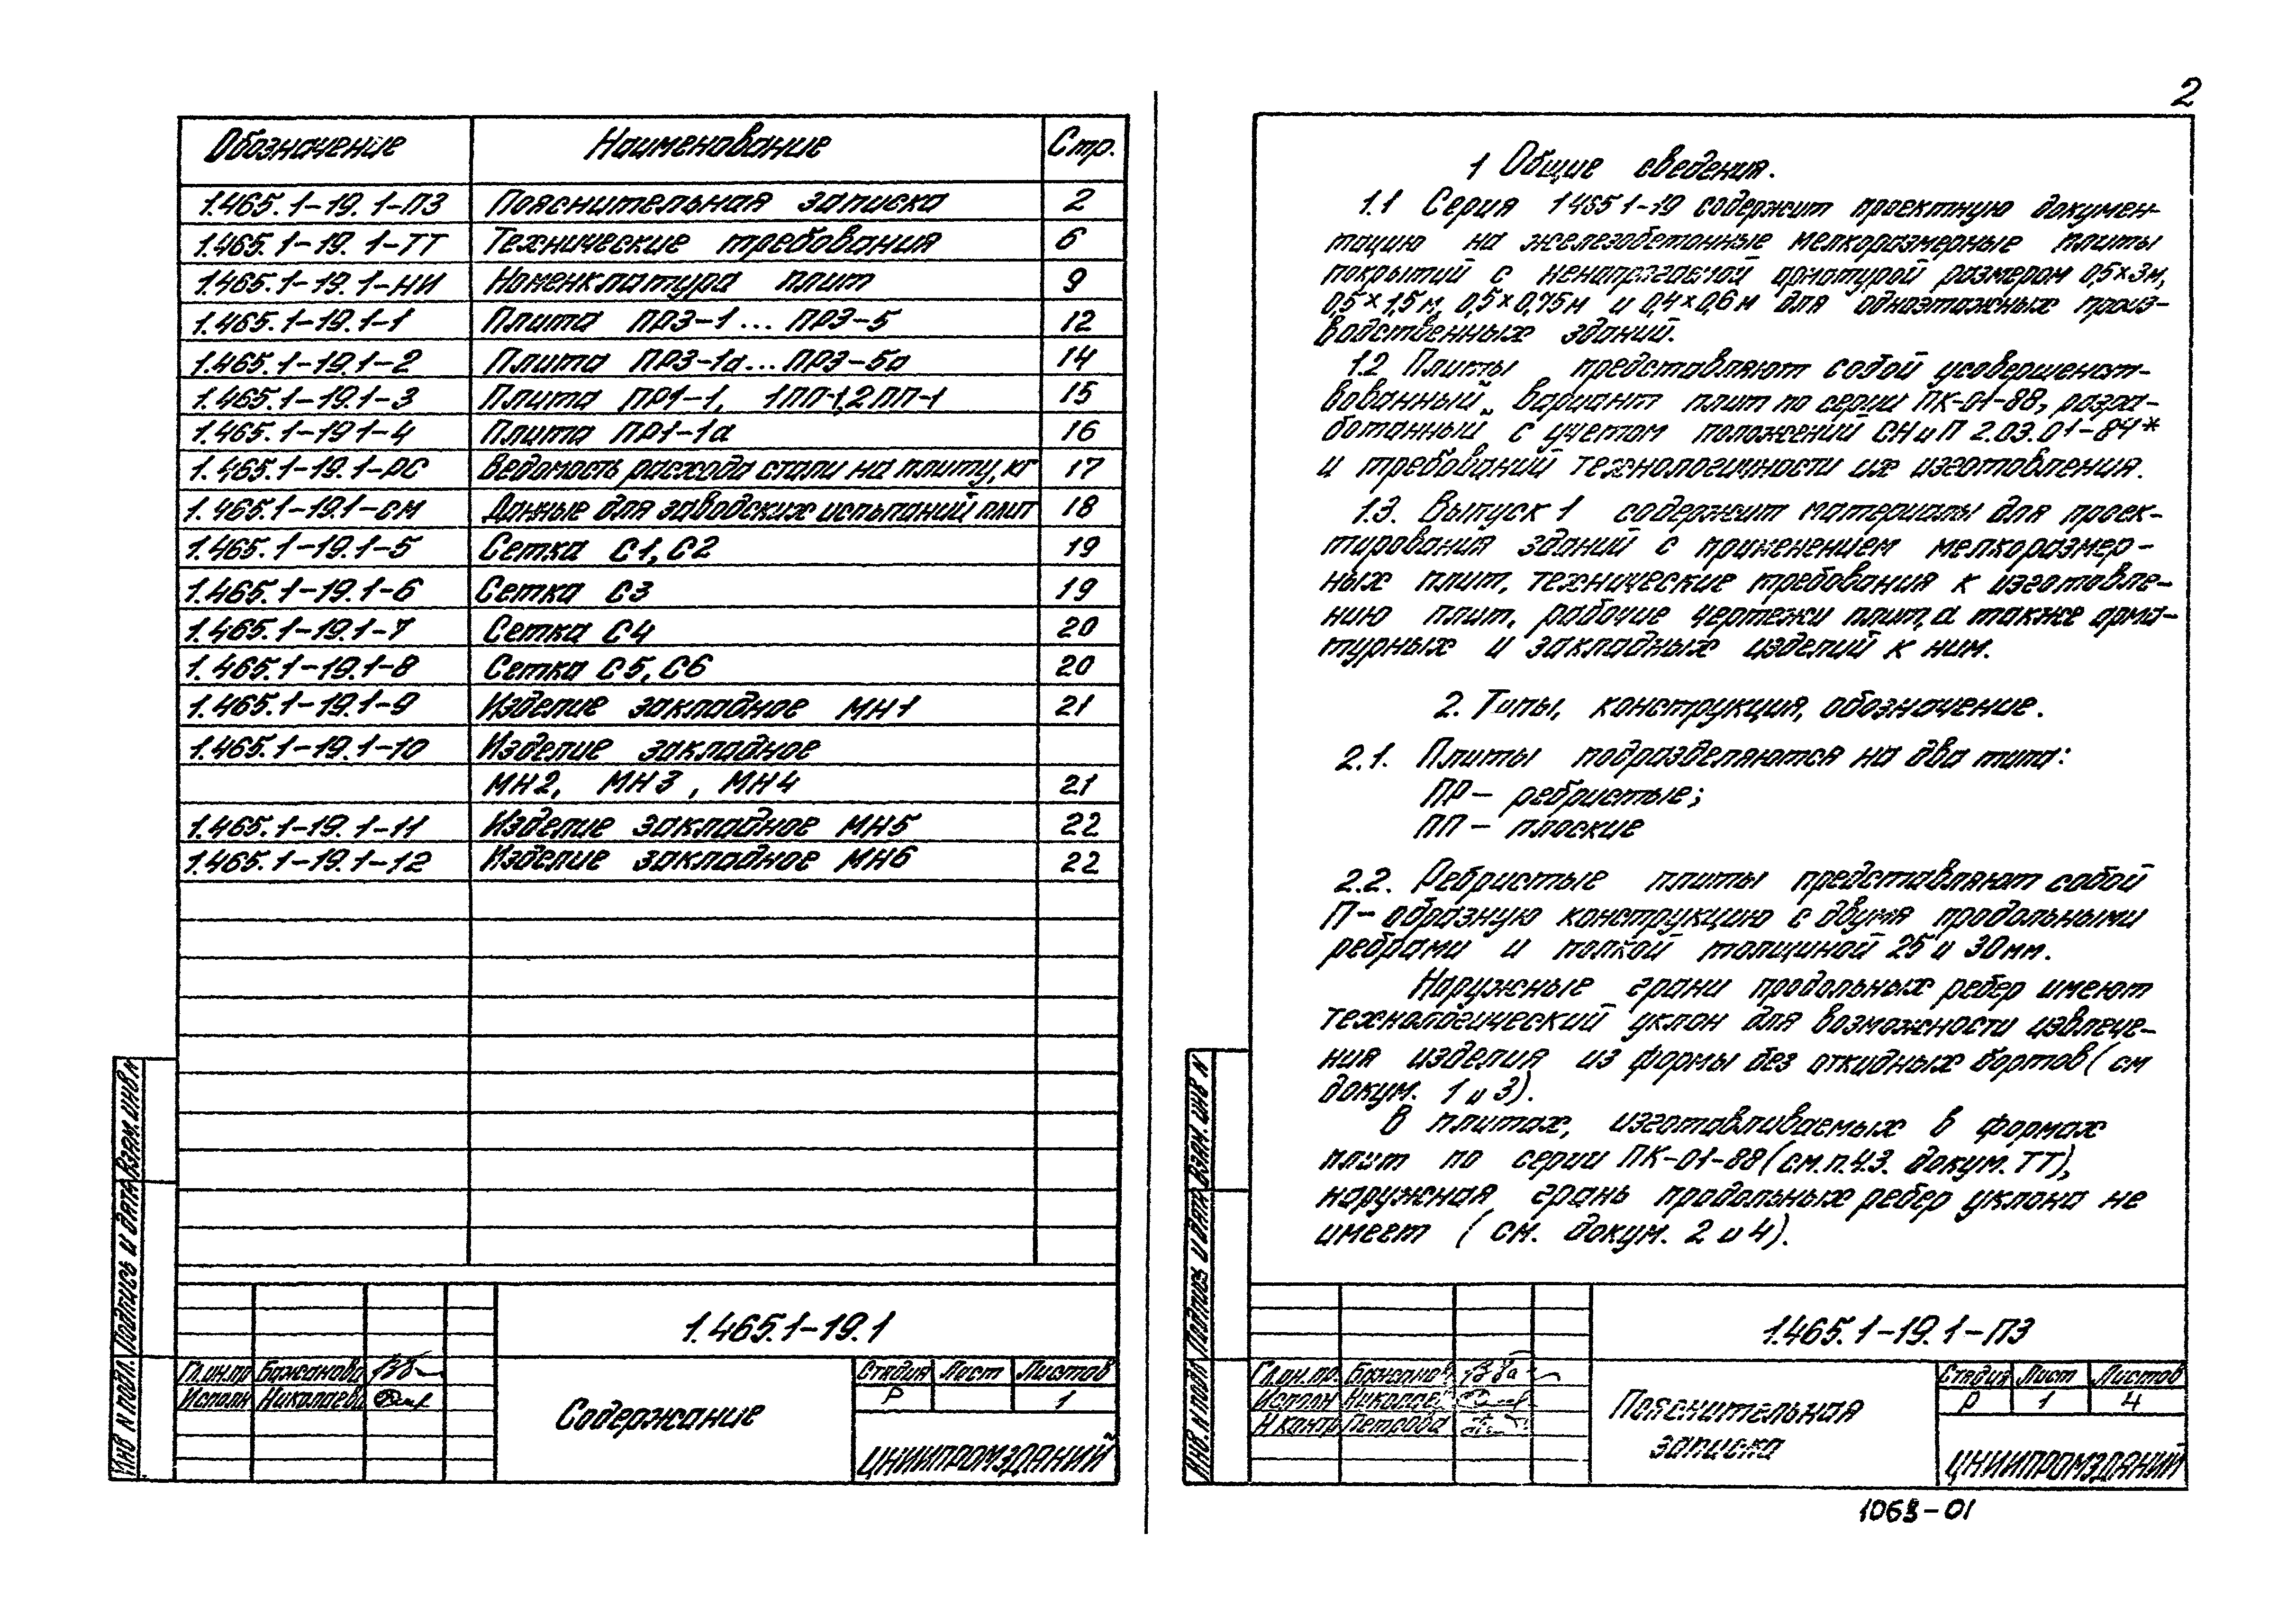 2
Обозначение Наименование Стр.
1.465.1-19.1-ПЗ Пояснительная записка 2
1.465.1-19.1-ТТ Технические требования 6
1.465.1-19.1-НИ Номенклатура плит 9
1.465.1-19.1-1 Плита ПР3-1 ... ПР3-5 12
1.465.1-19.1-2 Плита ПР3-1а ... ПР3-5а 14
1.465.1-19.1-3 Плита ПР1-1, 1ПП-1, 2ПП-1 15
1.465.1-19 1-4 Плита ПР1-1а 16
1.465.1-19.1-РС Ведомость расхода стали на плиту, кг 17
1.465.1-19.1-СМ Данные для заводских испытаний плит 18
1.465.1-19.1-5 Сетка С1, С2 19
1.465.1-19.1-6 Сетка С3 19
1.465.1-19.1-7 Сетка С4 20
1.465.1-19.1-8 Сетка С5, С6 20
1.465.1-19.1-9 Изделие закладное МН1 21
1.465.1-19.1-10 Изделие закладное
МН2, МН3, МН4 21
1.465.1-19.1-11 Изделие закладное МН5 22
1.465.1-19.1-12 Изделие закладное МН6 22
Инв N подл. Подпись и дата Взам. инв N
1.465.1-19.1
Гл.ин.пр Бажанова
Исполн Николаев
Содержание
Стадия Лист Листов
Р 1
ЦНИИПРОМЗДАНИЙ
1 Общие сведения.
1.1 Серия 1 465 1-19 содержит проектную докумен-
тацию на железобетонные мелкоразмерные плиты
покрытий с ненапрягаемой арматурой размером 0,5×3м,
0,5×1,5м, 0,5×0,75м и 0,4×0,6м для одноэтажных произ-
водственных зданий.
1.2 Плиты представляют собой усовершенст-
вованный вариант плит по серии ПК-01-88, разра-
ботанный с учетом положений СНиП 2.03.01-84*
и требований технологичности их изготовления.
1.3. Выпуск 1 содержит материалы для проек-
тирования зданий с применением мелкоразмер-
ных плит, технические требования к изготовле-
нию плит, рабочие чертежи плит, а также арма-
турных и закладных изделий к ним.
2. Типы, конструкция, обозначение.
2.1. Плиты подразделяются на два типа:
ПР - ребристые;
ПП - плоские
2.2. Ребристые плиты представляют собой
П-образную конструкцию с двумя продольными
ребрами и полкой толщиной 25 и 30мм.
Наружные грани продольных ребер имеют
технологический уклон для возможности извлече-
ния изделия из формы без откидных бортов (см
докум. 1 и 3).
В плитах, изготавливаемых в формах
плит по серии ПК-01-88 (см.п.4.3. докум. ТТ),
наружная грань продольных ребер уклона не
имеет (см. докум. 2 и 4).
Инв. N подл Подпись и дата Взам. инв N
1.465.1-19.1-ПЗ
Гл.ин.пр. Бажанов
Исполн Николаев
Н контр
Пояснительная
записка
Стадия Лист Листов
Р 1 4
ЦНИИПРОМЗДАНИЙ